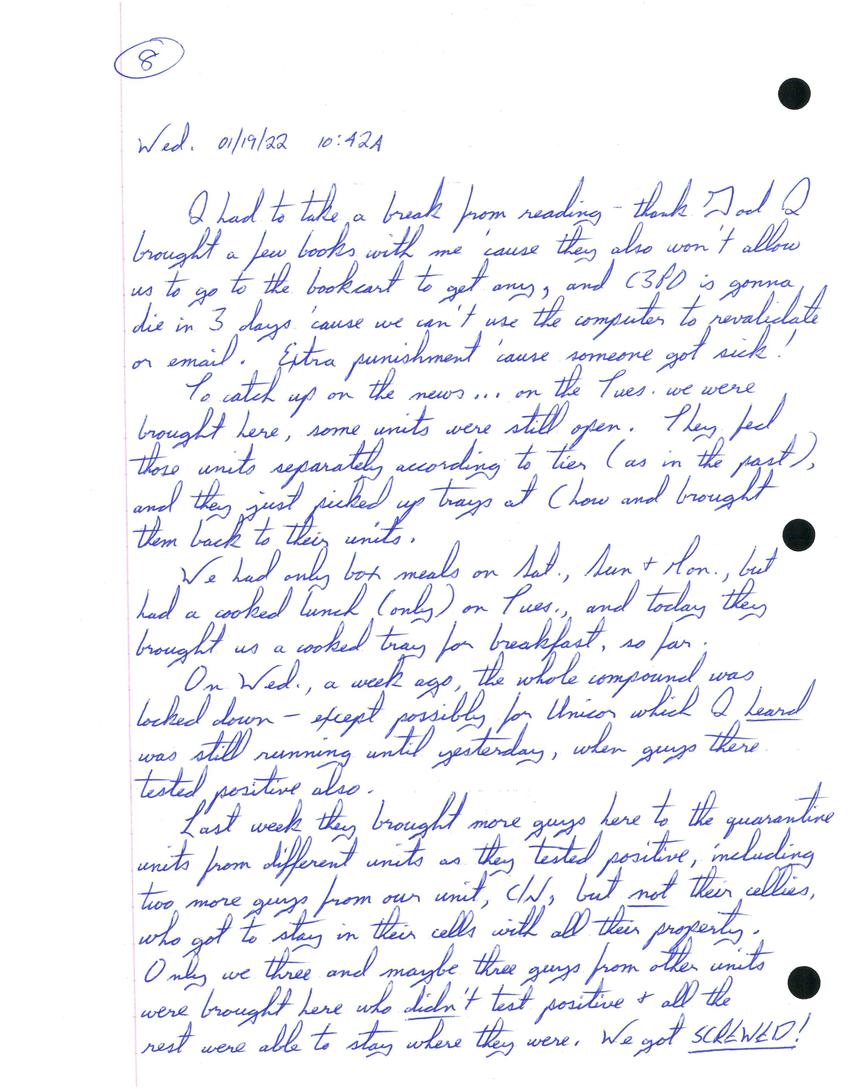 8
Wed. 01/19/22 10:42A
I had to take a break from reading - thank God I
brought a few books with me 'cause they also won't allow
us to go to the bookcart to get any, and C3PO is gonna
die in 3 days 'cause we can't use the computer to revalidate
or email. Extra punishment 'cause someone got sick!
To catch up on the news... on the Tues. we were
brought here, some units were still open. They fed
those units separately according to tier (as in the past),
and they just picked up trays at Chow and brought
them back to their units.
We had only box meals on Sat., Sun + Mon., but
had a cooked lunch (only) on Tues., and today they
brought us a cooked tray for breakfast, so far.
On Wed., a week ago, the whole compound was
locked down - except possibly for Unicor which I heard
was still running until yesterday, when guys there
tested positive also.
Last week they brought more guys here to the quarantine
units from different units as they tested positive, including
two more guys from our unit, C/N, but not their cellies,
who got to stay in their cells with all their property.
Only we three and maybe three guys from other units
were brought here who didn't test positive + all the
rest were able to stay where they were. We got SCREWED!